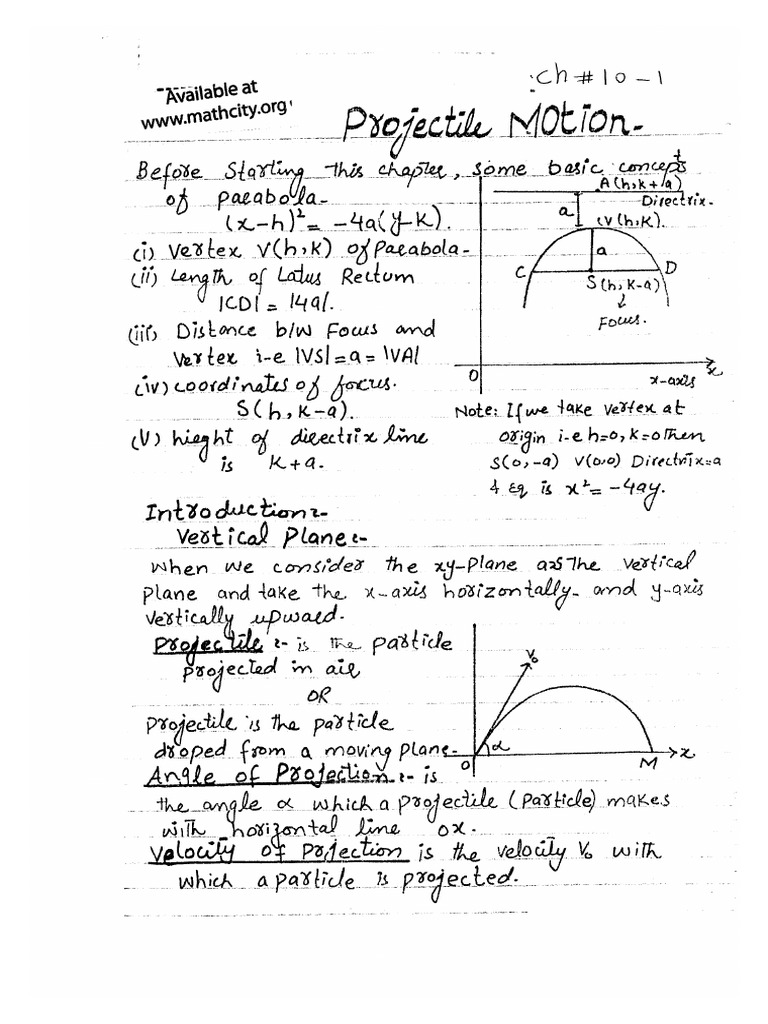 Available at
www.mathcity.org
Ch # 10-1
Projectile Motion-
Before Starting this chapter, some basic concept
of parabola-
(x-h)² = -4a(y-k).
(i) Vertex V(h,k) of Parabola-
(ii) Length of Latus Rectum
|CD| = |4a|.
(iii) Distance b/w Focus and
Vertex i-e |VS| = a = |VA|
(iv) coordinates of focus.
S(h, k-a).
(V) hieght of directrix line
is K+a.
A(h,k+a)
Directrix-
a
(V(h,K).
a
C
D
S(h,K-a)
Focus.
O
x
x-axis
Note: If we take vertex at
origin i-e h=0, k=0 then
S(0,-a) V(0,0) Directrix=a
& Eq is x² = -4ay.
Introduction:-
Vertical Plane:-
When we consider the xy-Plane as The vertical
Plane and take the x-axis horizontally- and y-axis
vertically upward.
Projectile:- is the particle
projected in air
OR
Projectile is the particle
droped from a moving plane-
V₀
α
O
M
x
Angle of Projection:- is
the angle α which a projectile (Particle) makes
with horizontal line ox.
Velocity of Projection is the velocity V₀ with
which a particle is projected.